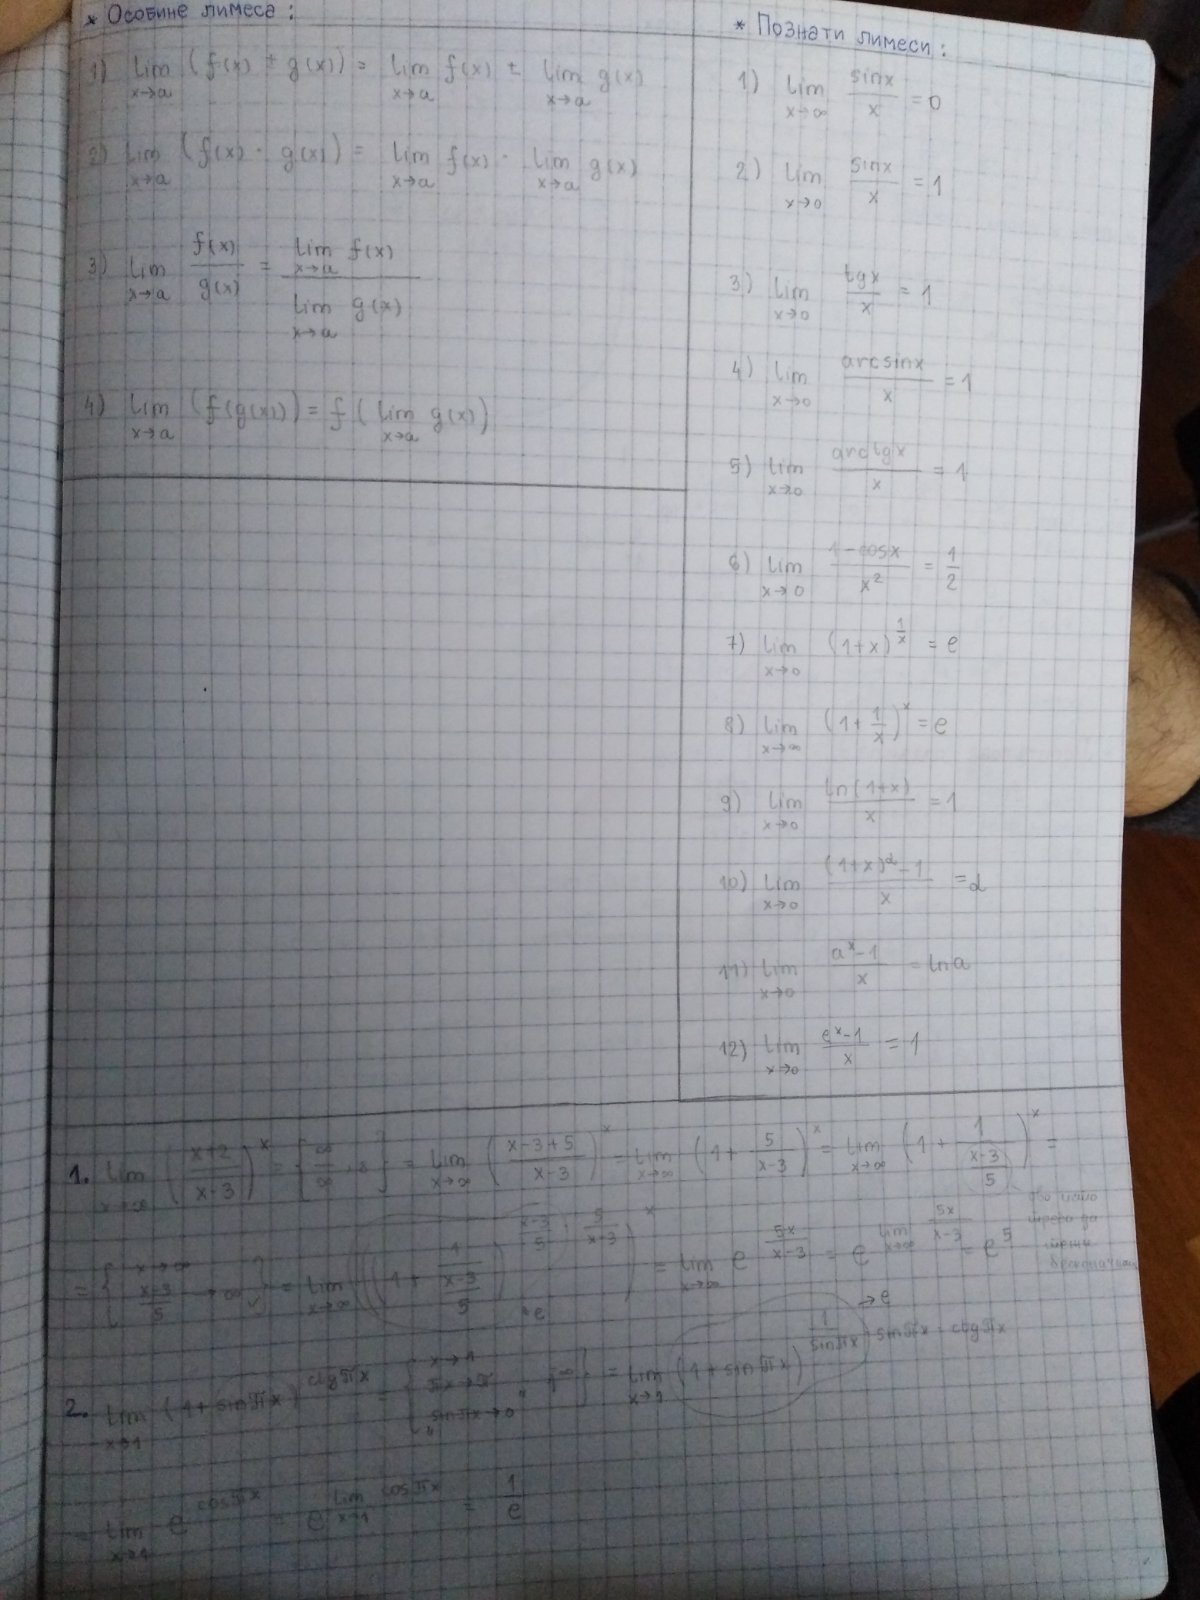 * Особине лимеса :
1) lim x→a (f(x) ± g(x)) = lim x→a f(x) ± lim x→a g(x)
2) lim x→a (f(x) · g(x)) = lim x→a f(x) · lim x→a g(x)
3) lim x→a f(x)/g(x) = lim x→a f(x) / lim x→a g(x)
4) lim x→a (f(g(x))) = f(lim x→a g(x))
* Познати лимеси :
1) lim x→∞ sinx/x = 0
2) lim x→0 sinx/x = 1
3) lim x→0 tgx/x = 1
4) lim x→0 arcsinx/x = 1
5) lim x→0 arctgx/x = 1
6) lim x→0 1-cosx/x² = 1/2
7) lim x→0 (1+x)^(1/x) = e
8) lim x→∞ (1+1/x)^x = e
9) lim x→0 ln(1+x)/x = 1
10) lim x→0 (1+x)^α-1/x = α
11) lim x→0 a^x-1/x = lna
12) lim x→0 e^x-1/x = 1
1. lim x→∞ (x+2/x-3)^x = [∞/∞] = lim x→∞ (x-3+5/x-3)^x = lim x→∞ (1+5/(x-3))^x = lim x→∞ (1+1/((x-3)/5))^x =
= {x→∞ (x-3)/5→∞} = lim x→∞ ((1+1/((x-3)/5))^((x-3)/5 · 5/(x-3)))^x = lim x→∞ e^(5x/(x-3)) = e^(lim x→∞ 5x/(x-3)) = e^5
→e
2. lim x→1 (1+sinπx)^(ctgπx) = {x→1 πx→π sinπx→0} = lim x→1 (1+sinπx)^(1/sinπx · sinπx · ctgπx)
→e
= lim x→1 e^(cosπx) = e^(lim x→1 cosπx) = 1/e